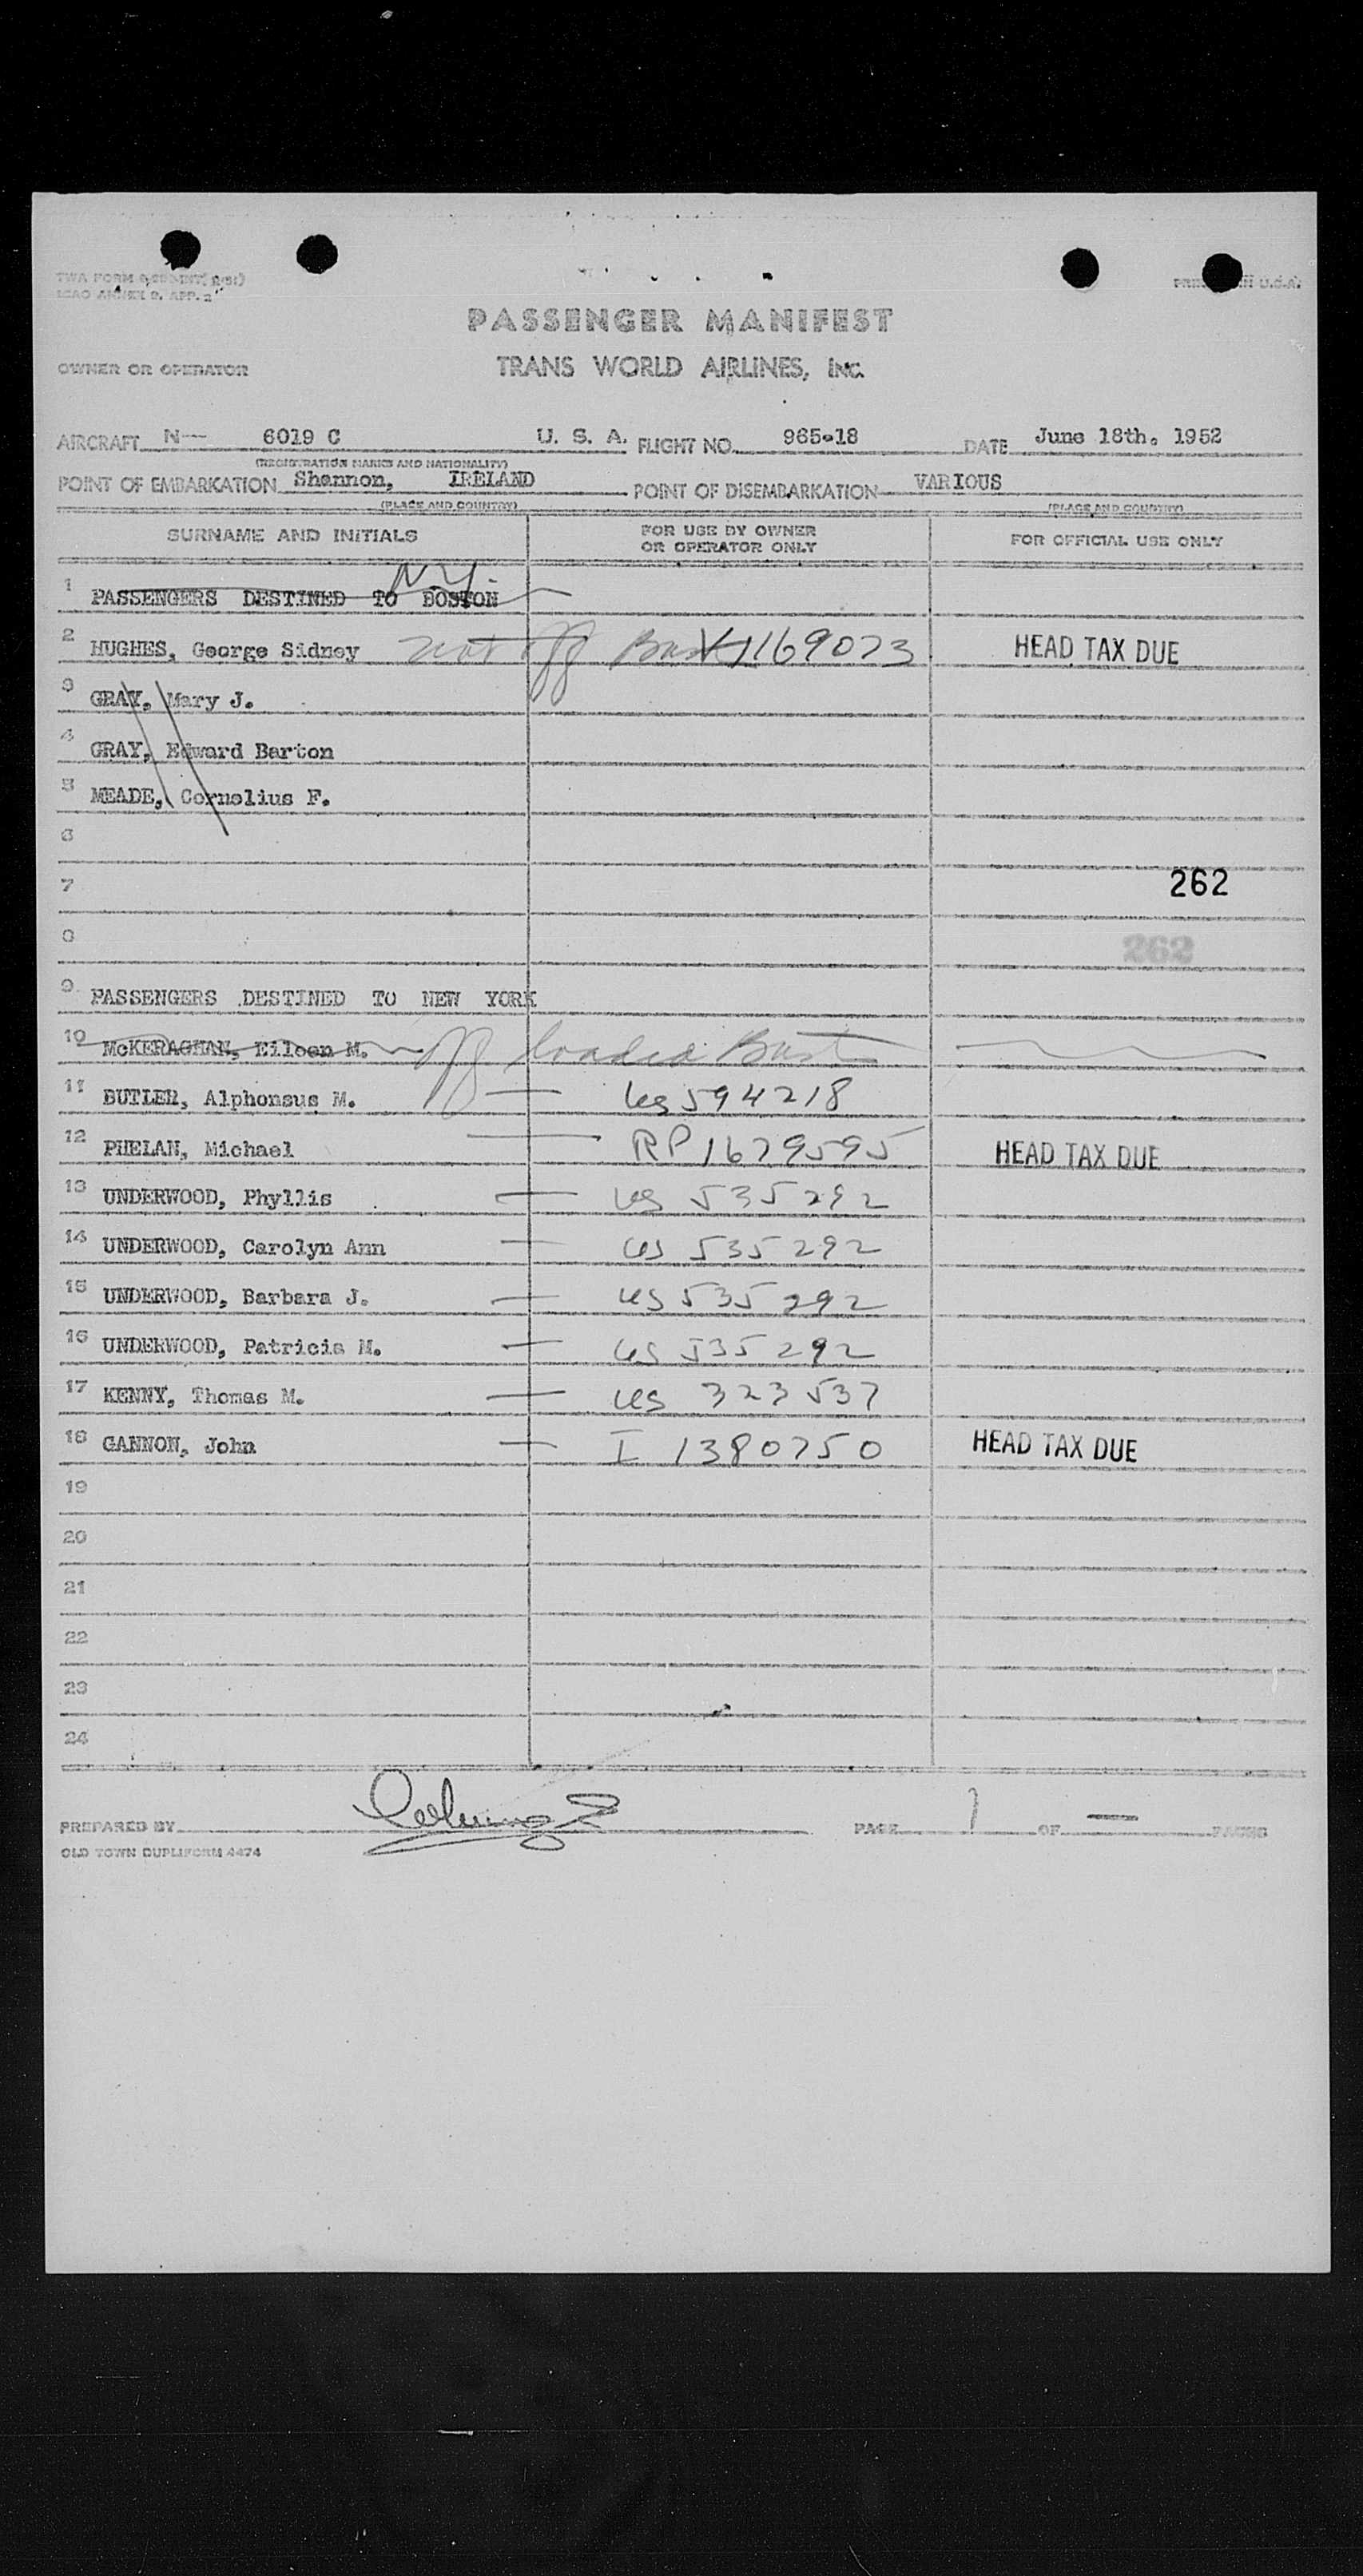 TWA FORM
ICAO ANNEX 9. APP. 2
U.S.A.
PASSENGER MANIFEST
OWNER OR OPERATOR TRANS WORLD AIRLINES, INC.
AIRCRAFT N-- 6019 C U. S. A. FLIGHT NO. 965-18 DATE June 18th. 1952
(REGISTRATION MARKS AND NATIONALITY)
POINT OF EMBARKATION Shannon, IRELAND POINT OF DISEMBARKATION VARIOUS
(PLACE AND COUNTRY) (PLACE AND COUNTRY)
SURNAME AND INITIALS FOR USE BY OWNER OR OPERATOR ONLY FOR OFFICIAL USE ONLY
N.Y.
1 PASSENGERS DESTINED TO BOSTON
2 HUGHES, George Sidney not off Bost V1169073 HEAD TAX DUE
3 GRAY, Mary J.
4 GRAY, Edward Barton
5 MEADE, Cornelius F.
6
7 262
8 262
9 PASSENGERS DESTINED TO NEW YORK
10 McKERAGHAN, Eileen M. off loaded Bost
11 BUTLER, Alphonsus M. — US 594218
12 PHELAN, Michael — RP 1679595 HEAD TAX DUE
13 UNDERWOOD, Phyllis — US 535292
14 UNDERWOOD, Carolyn Ann — US 535292
15 UNDERWOOD, Barbara J. — US 535292
16 UNDERWOOD, Patricia M. — US 535292
17 KENNY, Thomas M. — US 323537
18 GANNON, John — I 1380750 HEAD TAX DUE
19
20
21
22
23
24
PREPARED BY PAGE 1 OF — PAGES
OLD TOWN DUPLIFORM 4474